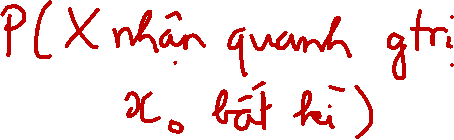 P(X nhận quanh gtrị
x₀ bất kì)